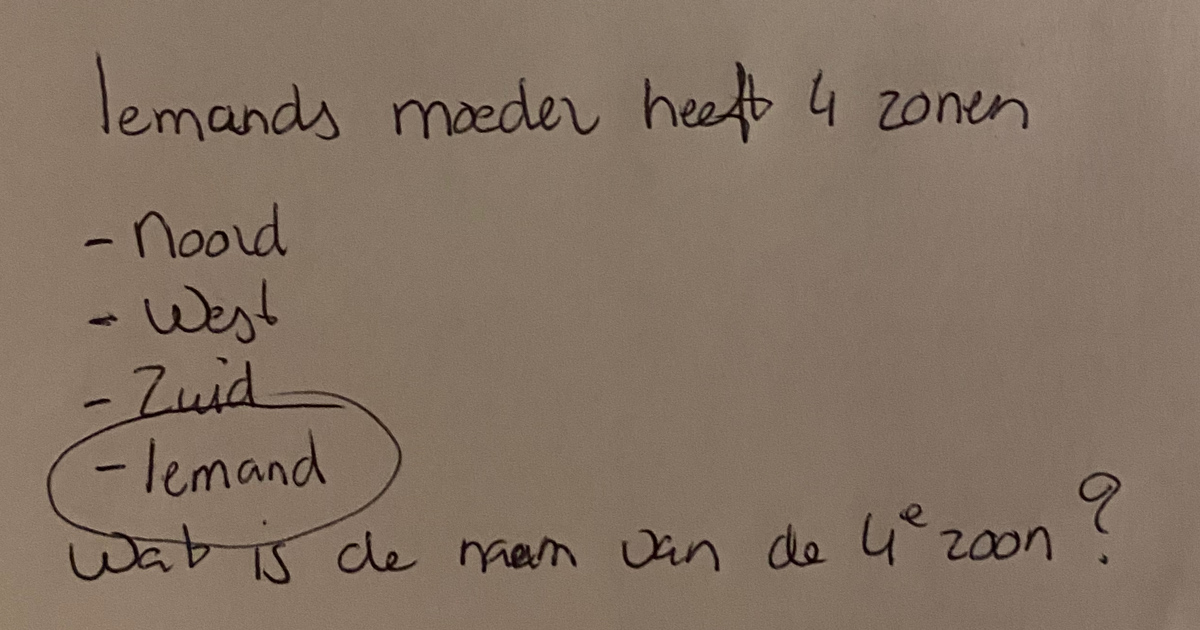 Iemands moeder heeft 4 zonen
- Noord
- West
- Zuid
- Iemand
Wat is de naam van de 4e zoon?